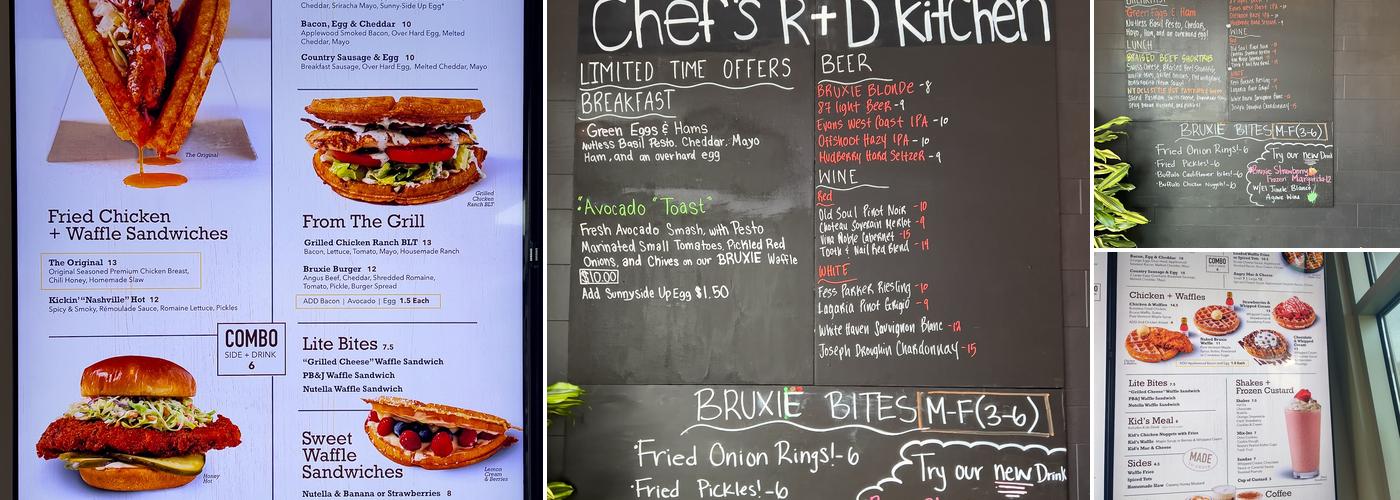 Cheddar, Sriracha Mayo, Sunny-Side Up Egg*
Bacon, Egg & Cheddar 10
Applewood Smoked Bacon, Over Hard Egg, Melted
Cheddar, Mayo
Country Sausage & Egg 10
Breakfast Sausage, Over Hard Egg, Melted Cheddar, Mayo
The Original
Grilled
Chicken
Ranch BLT
Fried Chicken
+ Waffle Sandwiches
The Original 13
Original Seasoned Premium Chicken Breast,
Chili Honey, Homemade Slaw
Kickin' "Nashville" Hot 12
Spicy & Smoky, Rémoulade Sauce, Romaine Lettuce, Pickles
From The Grill
Grilled Chicken Ranch BLT 13
Bacon, Lettuce, Tomato, Mayo, Housemade Ranch
Bruxie Burger 12
Angus Beef, Cheddar, Shredded Romaine,
Tomato, Pickle, Burger Spread
ADD Bacon | Avocado | Egg 1.5 Each
COMBO
SIDE + DRINK
6
Lite Bites 7.5
"Grilled Cheese" Waffle Sandwich
PB&J Waffle Sandwich
Nutella Waffle Sandwich
Honey
Hot
Sweet
Waffle
Sandwiches
Lemon
Cream
& Berries
Nutella & Banana or Strawberries 8
Chef's R+D Kitchen
LIMITED TIME OFFERS
BREAKFAST
Green Eggs & Hams
Nutless Basil Pesto, Cheddar, Mayo
Ham, and an overhard egg
"Avocado "Toast"
Fresh Avocado Smash, with Pesto
Marinated Small Tomatoes, Pickled Red
Onions, and Chives on our BRUXIE Waffle
$10.00
Add Sunnyside Up Egg $1.50
BEER
BRUXIE BLONDE -8
805 Light Beer -9
Evans West Coast IPA -10
Offshoot Hazy IPA -10
Mudberry Hard Seltzer -9
WINE
Red
Old Soul Pinot Noir -10
Chateau Soverain Merlot -9
Vina Noble Cabernet -15
Tooth & Nail Red Blend -14
WHITE
Fess Parker Riesling -10
Lagaria Pinot Grigio -9
White Haven Sauvignon Blanc -12
Joseph Droughin Chardonnay -15
BRUXIE BITES M-F(3-6)
Fried Onion Rings!-6
Fried Pickles!-6
Try our new Drink
Green Eggs & Ham
Nutless Basil Pesto, Cheddar,
Mayo, Ham, and an overhard egg!
LUNCH
BRAISED BEEF SHORTRIB
WINE
Red
WHITE
BRUXIE BITES M-F(3-6)
Fried Onion Rings!-6
Fried Pickles!-6
Buffalo Cauliflower bites!-6
Buffalo Chicken Nuggets!-6
Try our new Drink
Bruxie Strawberry
Frozen Margarita-12
w/El Jimble Blanco
Agave Wine
COMBO
Country Sausage & Egg 10
Chicken + Waffles
Chicken & Waffles 14.5
Lite Bites 7.5
"Grilled Cheese" Waffle Sandwich
PB&J Waffle Sandwich
Nutella Waffle Sandwich
Kid's Meal 8
Kid's Chicken Nuggets with Fries
Kid's Mac & Cheese
Sides 4.5
Waffle Fries
Homemade Slaw
MADE
Shakes +
Frozen Custard
Shakes 7.5
Coffee